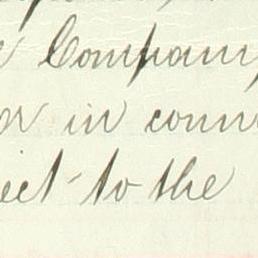 Company
or in conn
ect to the